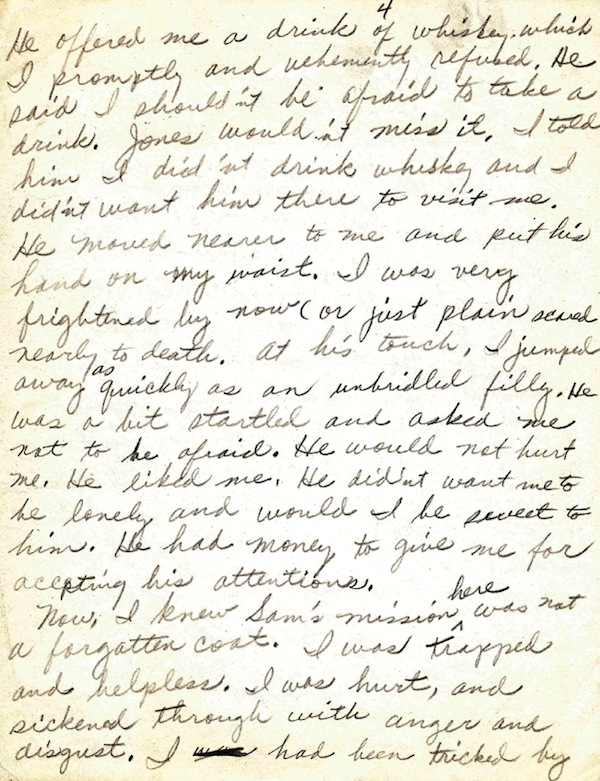 4
He offered me a drink of whiskey. which
I promptly and vehemently refused. He
said I should'nt be afraid to take a
drink. Jones would'nt miss it. I told
him I did'nt drink whiskey and I
did'nt want him there to visit me.
He moved nearer to me and put his
hand on my waist. I was very
frightened by now (or just plain scared
nearly to death. At his touch, I jumped
away as quickly as an unbridled filly. He
was a bit startled and asked me
not to be afraid. He would not hurt
me. He liked me. He did'nt want me to
be lonely and would I be sweet to
him. He had money to give me for
accepting his attentions.
Now, I knew Sam's mission here was not
a forgotten coat. I was trapped
and helpless. I was hurt, and
sickened through with anger and
disgust. I was had been tricked by